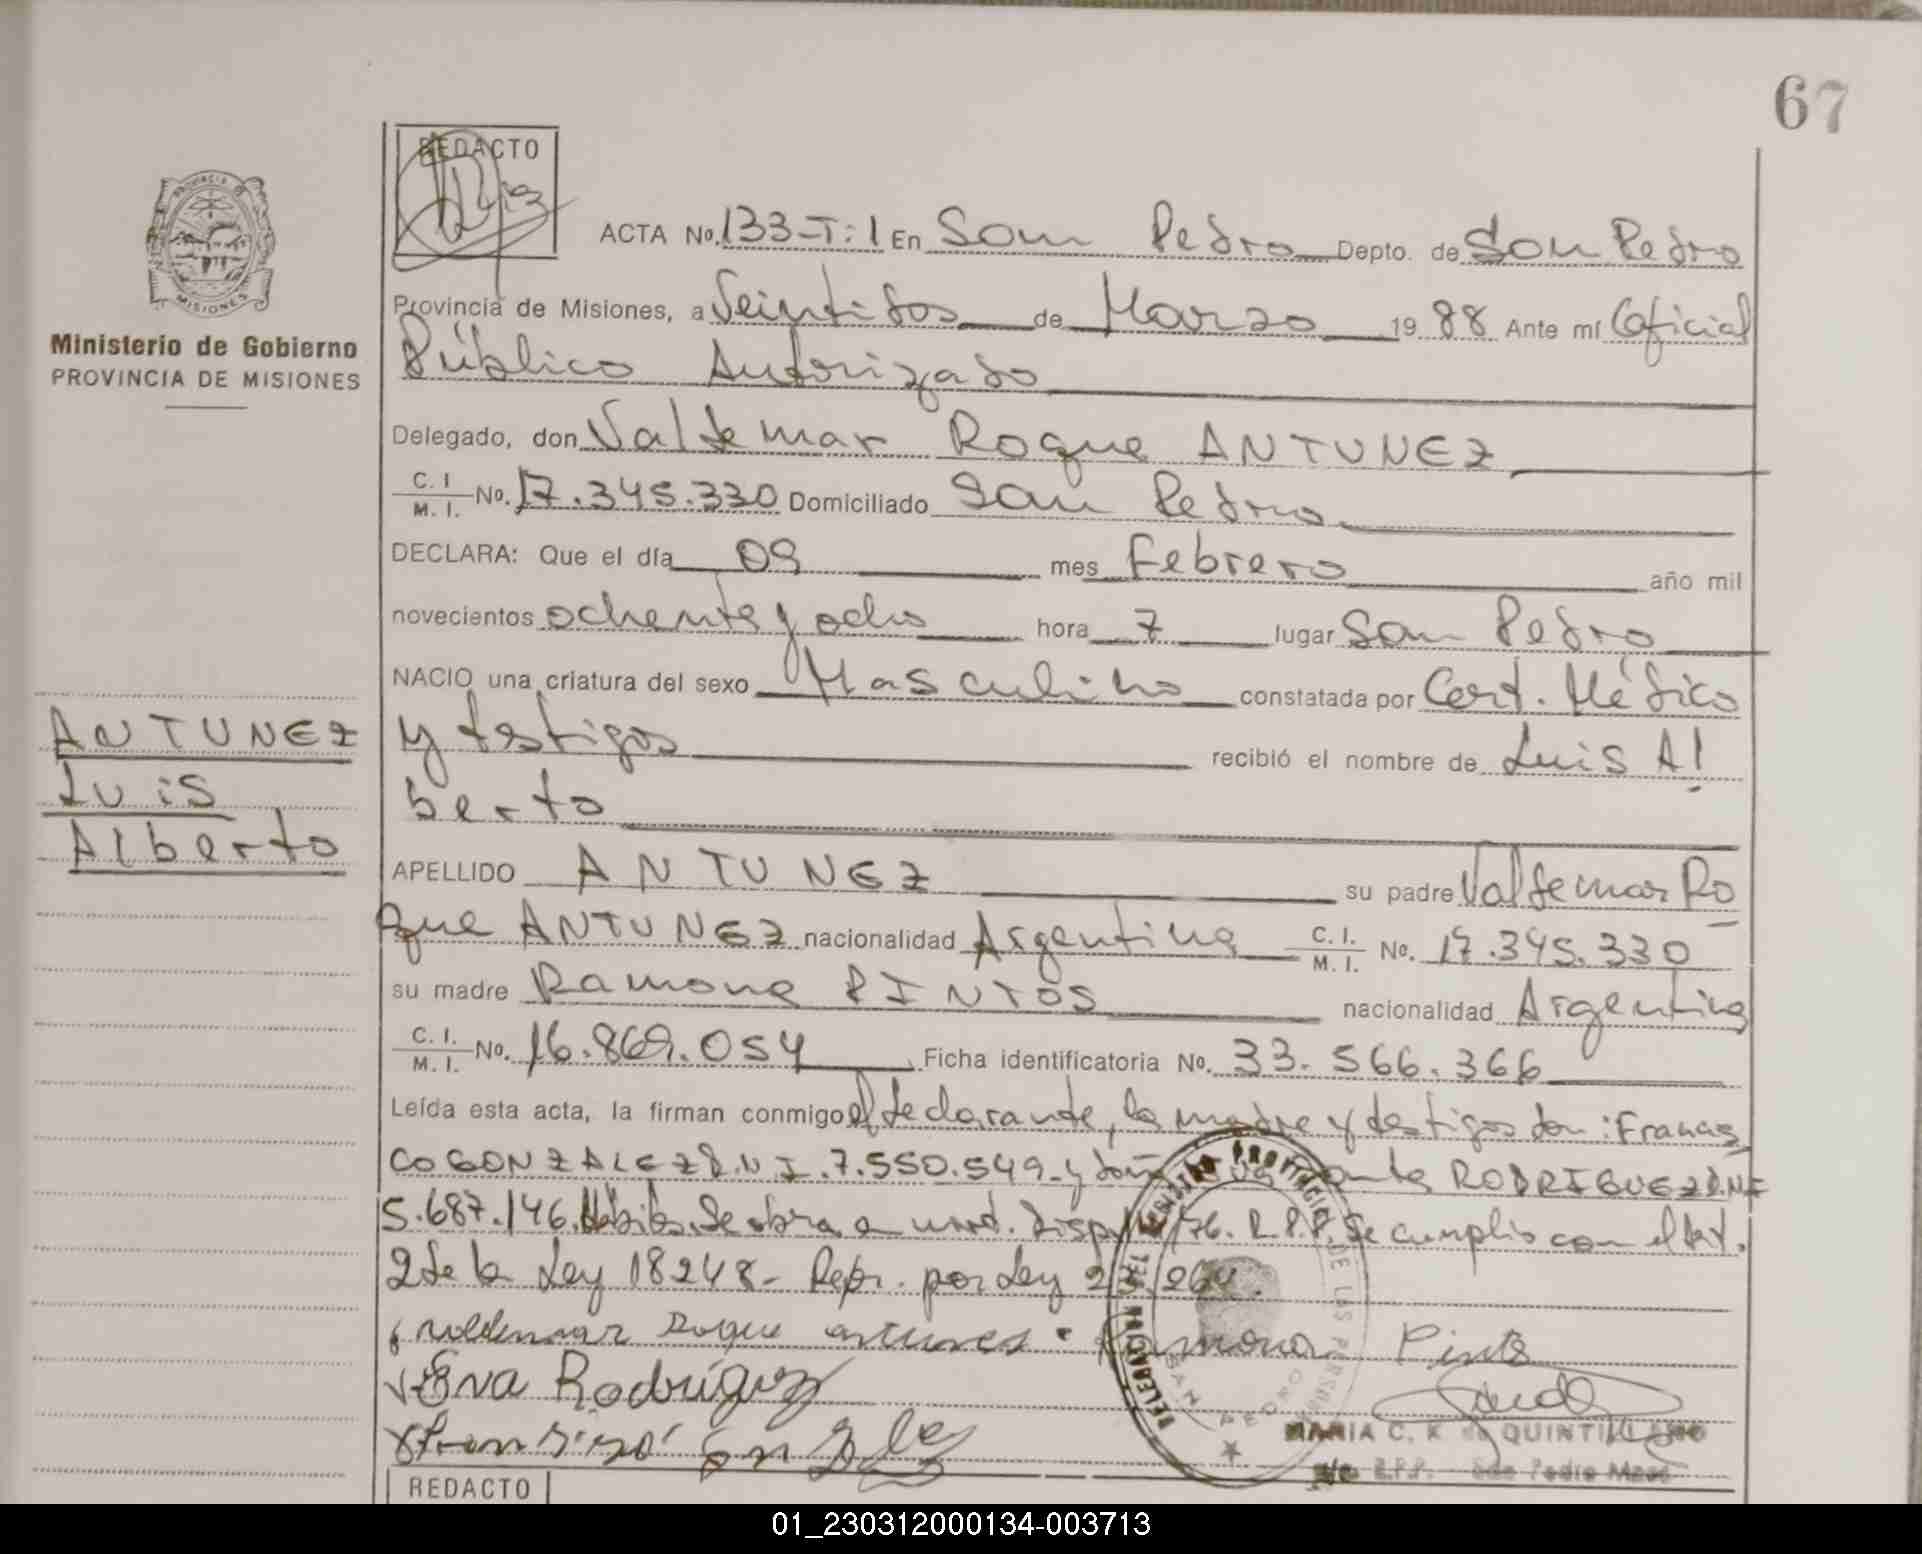 67
REDACTO
ACTA No. 133-T: 1 En San Pedro Depto. de San Pedro
Provincia de Misiones, a Veintidos de Marzo 19 88 Ante mí Oficial
Público Autorizado
Delegado, don Valdemar Roque ANTUNEZ
C. I. M. I. No. 17.345.330 Domiciliado San Pedro
DECLARA: Que el día 09 mes Febrero año mil
novecientos ochenta y ocho hora 7 lugar San Pedro
NACIO una criatura del sexo Masculino constatada por Cert. Médico
y testigos recibió el nombre de Luis Al
berto
APELLIDO ANTUNEZ su padre Valdemar Ro
que ANTUNEZ nacionalidad Argentina C. I. M. I. No. 17.345.330
su madre Ramona PINTOS nacionalidad Argentina
C. I. M. I. No. 16.869.054 Ficha identificatoria No. 33.566.366
Leída esta acta, la firman conmigo el declarante, la madre y testigos don: Francis
co GONZALEZ D.N.I. 7.550.549 y doña RODRIGUEZ D.N.I
5.687.146. Hábiles. Se obra a Disp. /76. R.P.P. Se cumplio con el Art.
2 de la Ley 18248- Repr. por Ley 23.264.
Valdemar Roque antunes Ramona Pintos
Eva Rodríguez
Fransisco Gonzalez
MARIA C. K. de QUINTILLANO
REDACTO
PROVINCIA DE MISIONES
Ministerio de Gobierno
PROVINCIA DE MISIONES
ANTUNEZ
Luis
Alberto
DELEGACION REGISTRO PROVINCIAL DE LAS PERSONAS
SAN PEDRO
01_230312000134-003713